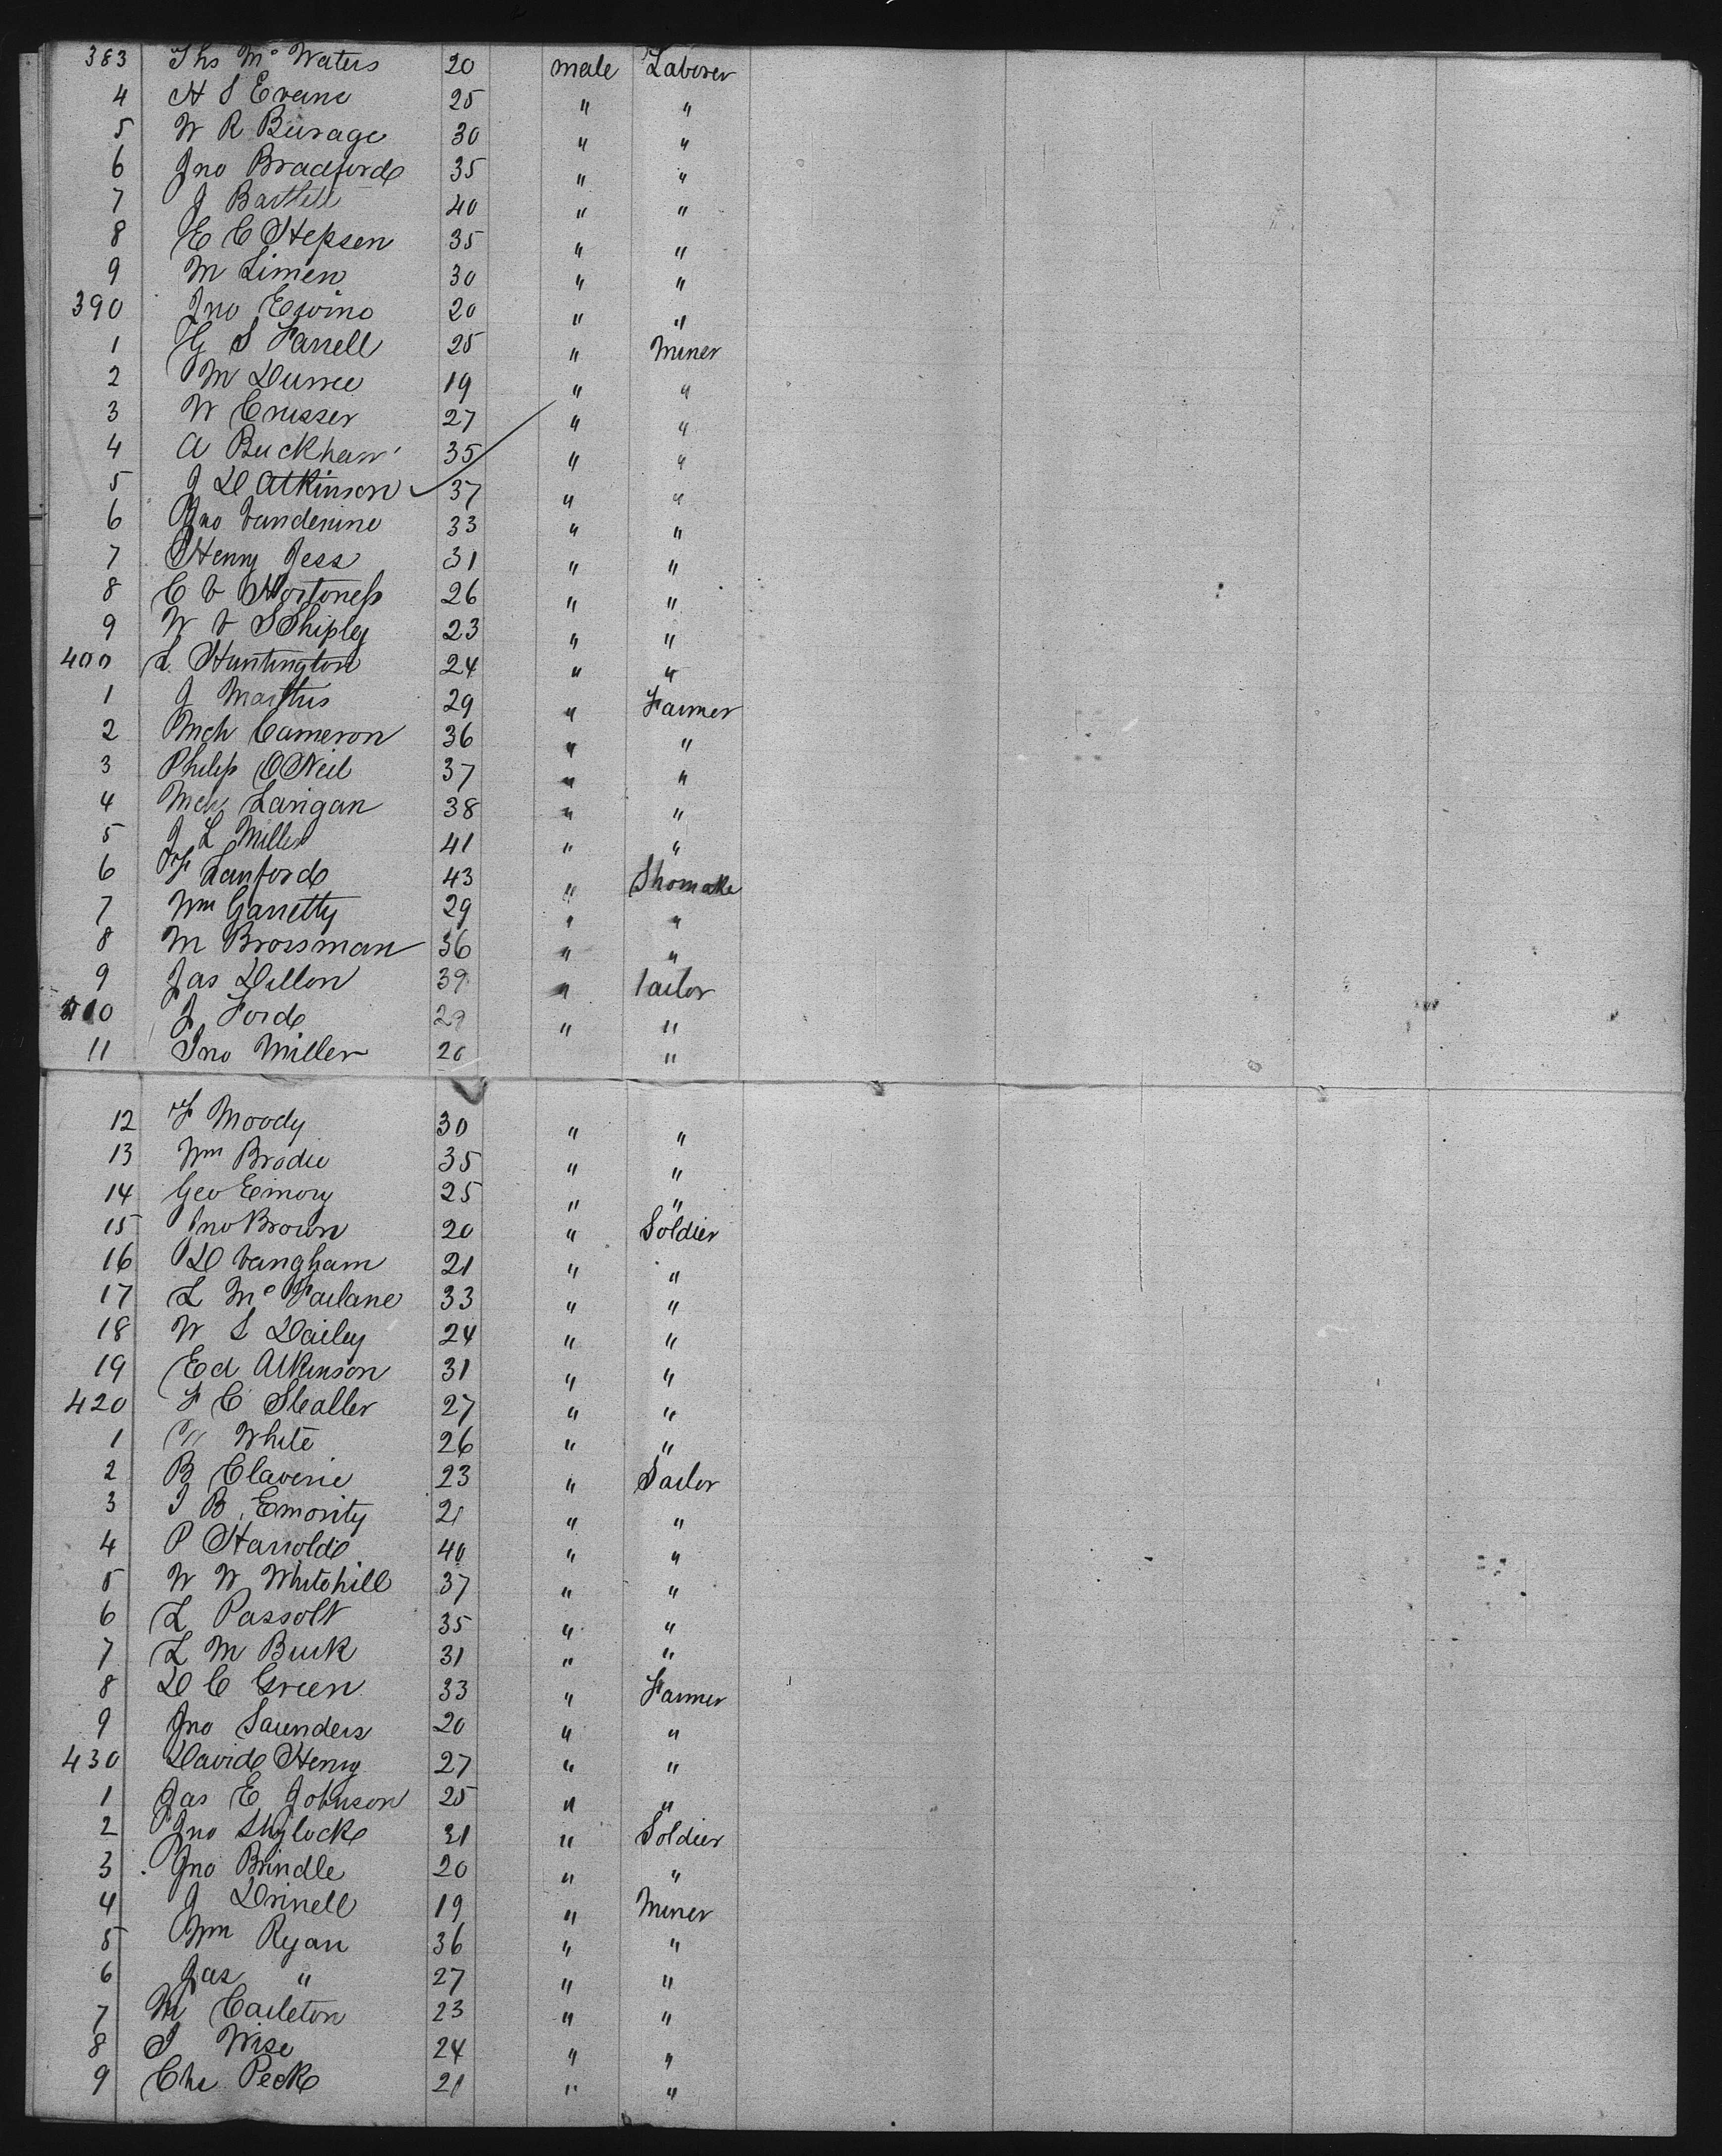 383 Ths Mc Waters 20 male Laborer
4 H S Evans 25 " "
5 W R Burage 30 " "
6 Jno Bradford 35 " "
7 J Bartlett 40 " "
8 E C Stepsen 35 " "
9 M Limen 30 " "
390 Jno Ewing 20 " "
1 G S Farrell 25 " Miner
2 M Durree 19 " "
3 W Crusser 27 " "
4 A Buckhan 35 " "
5 J D Atkinson 37 " "
6 Jno Vanderine 33 " "
7 Henry Jess 31 " "
8 C V Hortoness 26 " "
9 W V S Shipley 23 " "
400 L Huntington 24 " "
1 J Marthis 29 " Farmer
2 Mch Cameron 36 " "
3 Philip O Neil 37 " "
4 Mch Larigan 38 " "
5 J L Miller 41 " "
6 F Lanford 43 " Shomake
7 Wm Garretty 29 " "
8 M Brossman 36 " "
9 Jas Dillon 39 " Tailor
410 J Ford 29 " "
11 Jno Miller 20 "
12 F Moody 30 " "
13 Wm Brodie 35 " "
14 Geo Emory 25 " "
15 Jno Brown 20 " Soldier
16 D Vangham 21 " "
17 L Mc Farlane 33 " "
18 W S Dailey 24 " "
19 Ed Atkinson 31 " "
420 F C Slealler 27 " "
1 White 26 " "
2 B Claverie 23 " Sailor
3 J B Emority 21 " "
4 P Harrold 40 " "
5 W W Whitehill 37 " "
6 L Passolt 35 " "
7 L M Buck 31 " "
8 D C Green 33 " Farmer
9 Jno Saunders 20 " "
430 David Henry 27 " "
1 Jas E Johnson 25 " "
2 Jno Shylock 31 " Soldier
3 Jno Brindle 20 " "
4 J Drinell 19 " Miner
5 Wm Ryan 36 " "
6 Jas " 27 " "
7 M Carleton 23 " "
8 J Wise 24 " "
9 Chs Peck 21 " "